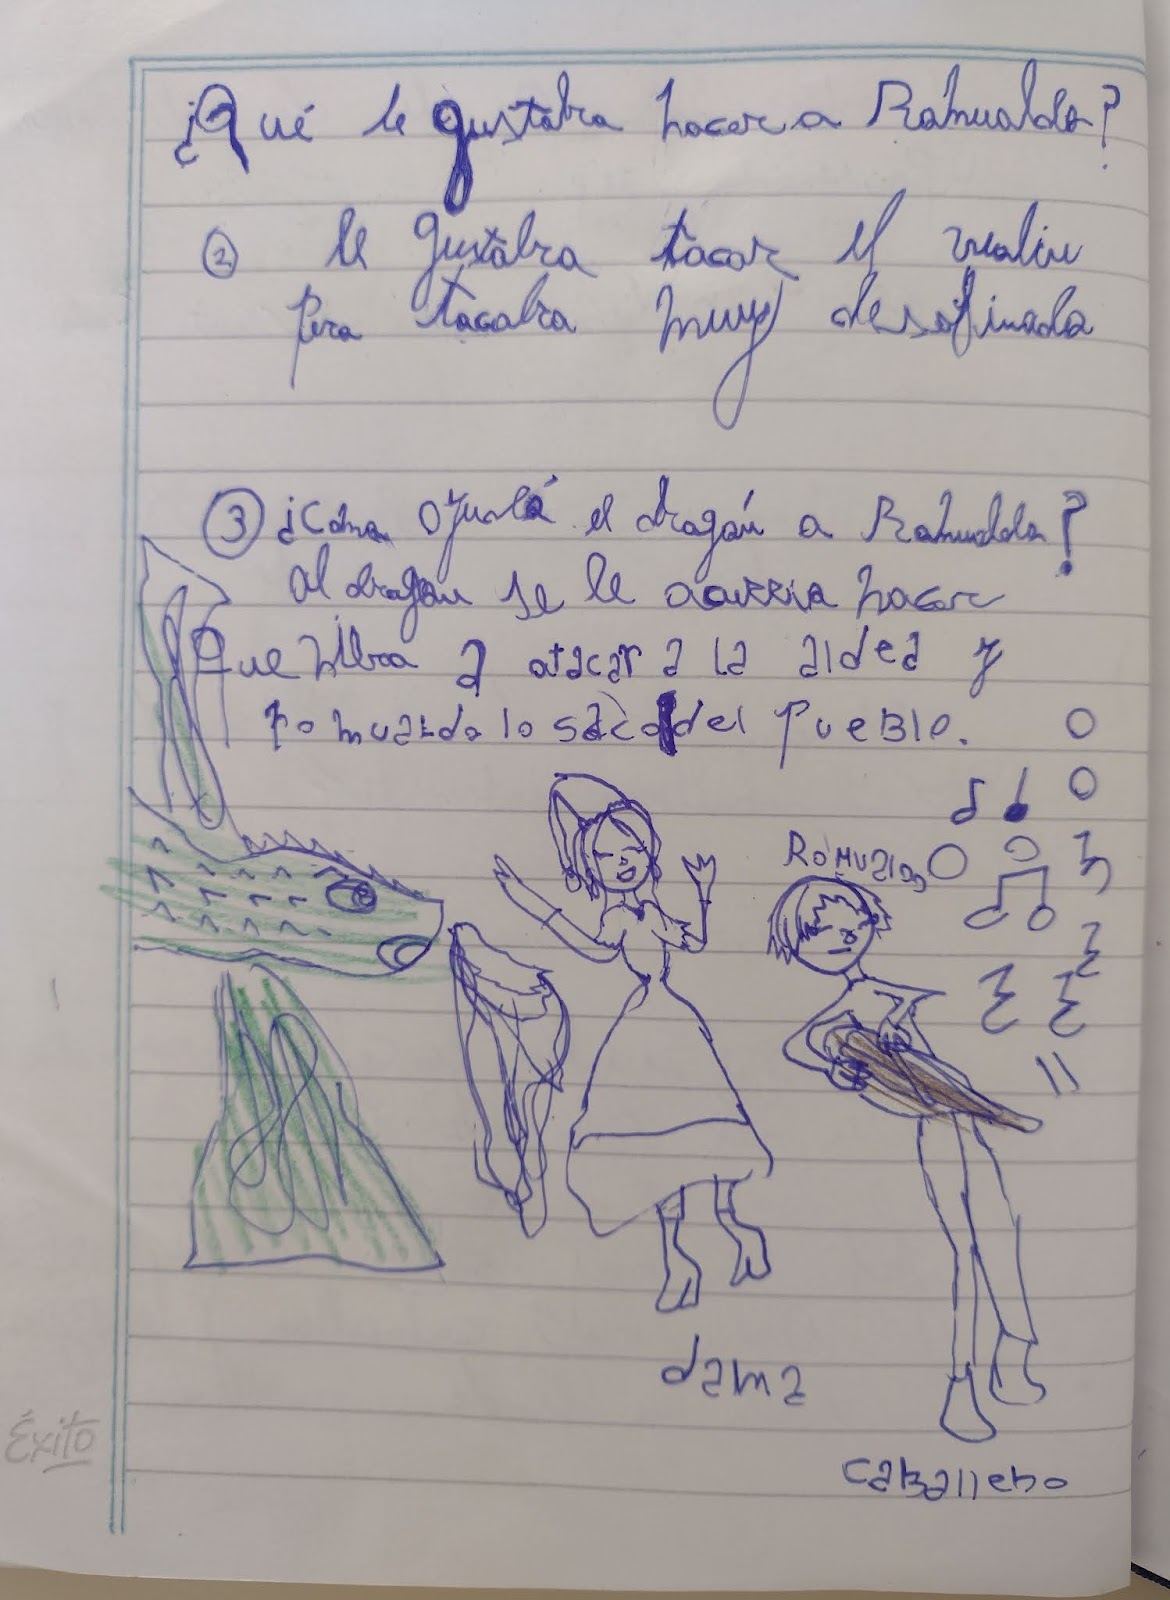 ¿Qué le gustaba hacer a Romualdo?
② le gustaba tocar el violin
pero tocaba muy desafinado
③ ¿Cómo ayudó el dragón a Romualdo?
Al dragón se le ocurria hacer
que iba a atacar a la aldea y
romualdo lo saco del pueblo.
Romualdo
dama
caballero
Éxito